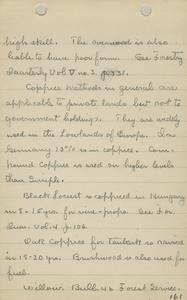 high skill. The overwood is also
liable to have poor form. See Forestry
Quarterly Vol V no. 3. p. 331.
Coppice methods in general are
applicable to private lands but not to
government holdings. They are widely
used in the Lowlands of Europe. In
Germany 13% is in coppice. Com-
pound Coppice is used on higher levels
than Simple.
Black locust is coppiced in Hungary
in 8-15 yrs. for vine-props. See For.
Quar. Vol. 4 p. 106.
Oak Coppice for tanbark is raised
in 15-20 yrs. Brushwood is also used for
fuel.
Willow: Bull. 46 Forest Service.